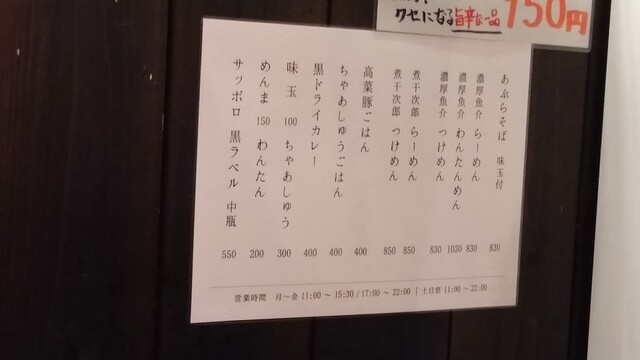 クセになる旨辛な一品 150円
あぶらそば 味玉付 830
濃厚魚介 らーめん 830
濃厚魚介 わんたんめん 1030
濃厚魚介 つけめん 830
煮干次郎 らーめん 850
煮干次郎 つけめん 850
高菜豚ごはん 400
ちゃあしゅうごはん 400
黒ドライカレー 400
味玉 100 ちゃあしゅう 300
めんま 150 わんたん 200
サッポロ 黒ラベル 中瓶 550
営業時間 月～金 11:00 ～ 15:30 / 17:00 ～ 22:00 | 土日祭 11:00 ～ 22:00